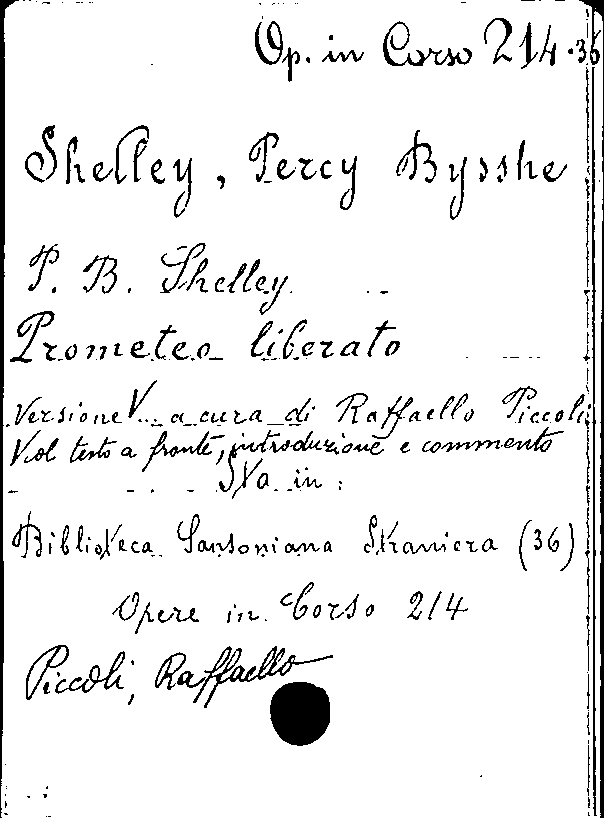 Op. in Corso 214.36
Shelley, Percy Bysshe
P. B. Shelley
Prometeo liberato
Versione V... a cura di Raffaello Piccoli
V col testo a fronte, introduzione e commento
Sta in:
Biblioteca Sansoniana Straniera (36)
Opere in Corso 214
Piccoli, Raffaello